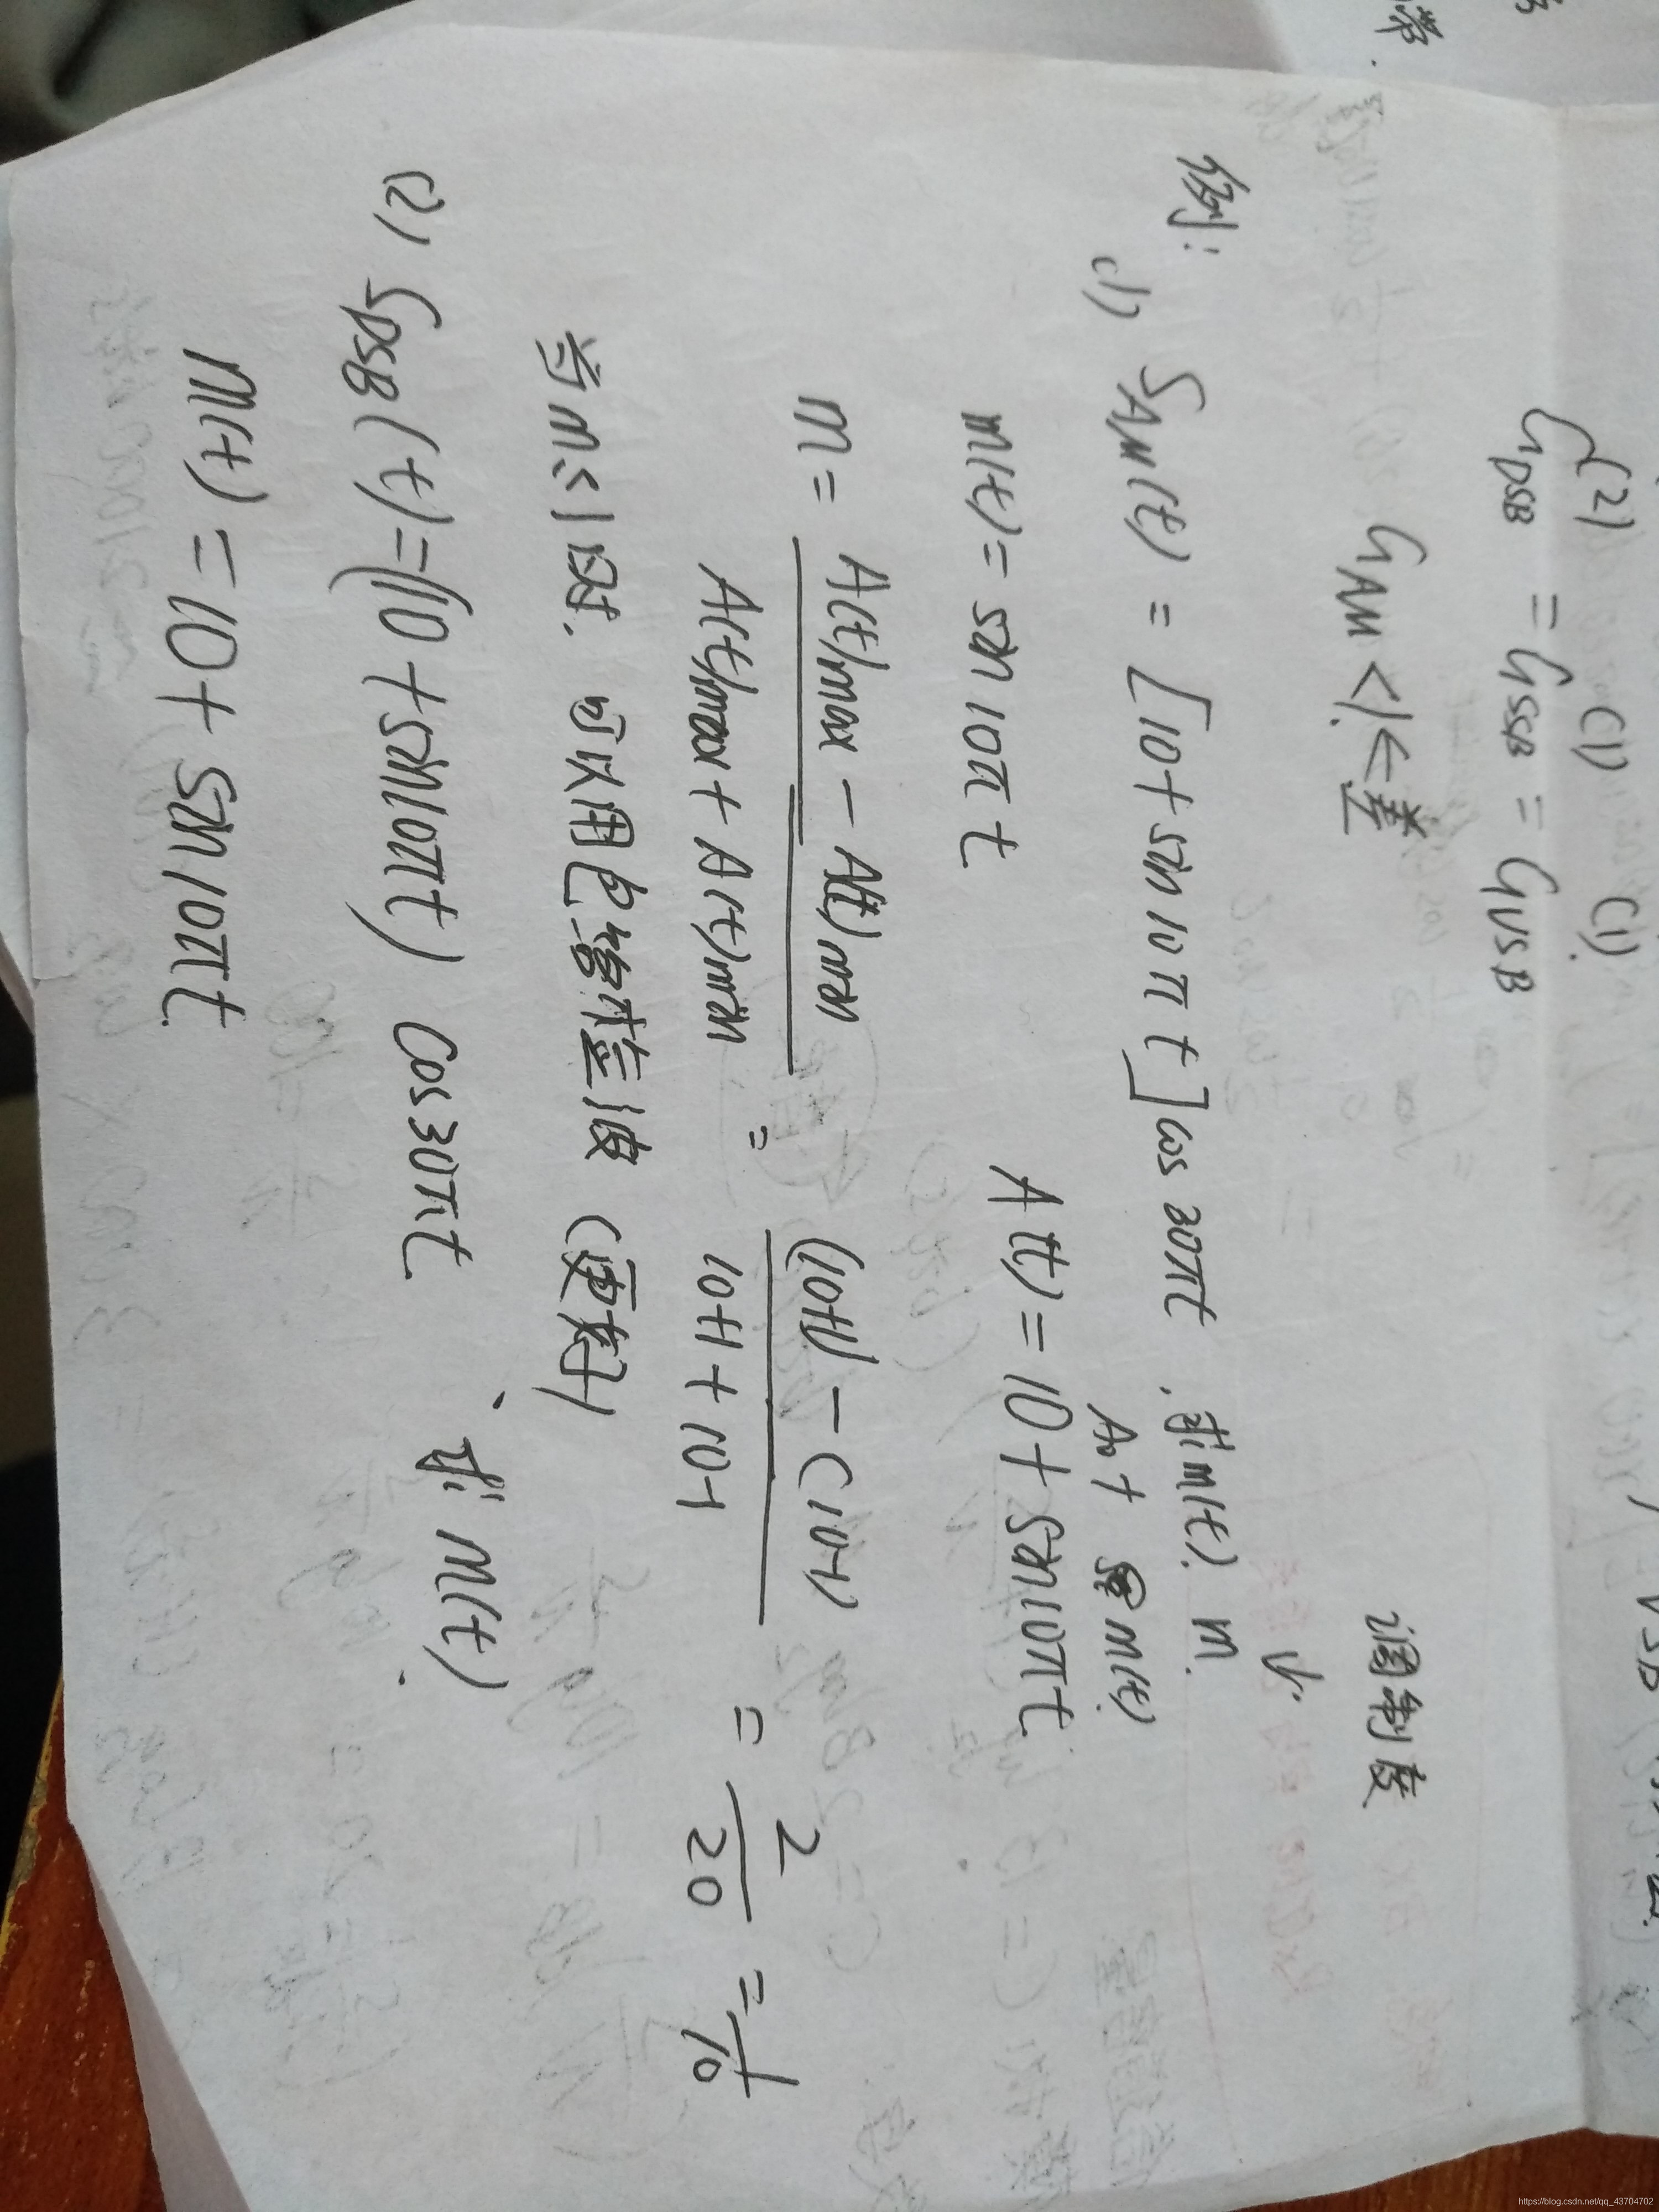 (2) (1) (1)
G_DSB = G_SSB = G_VSB
G_AM < 1 ← 差
调制度
例:
(1) S_AM(t) = [10+sin10πt]cos30πt. 求m(t). m.
A0+ m(t)
m(t) = sin10πt A(t) = 10+sin10πt
m = A(t)max - A(t)min / A(t)max + A(t)min = (10+1) - (10-1) / 10+1+10-1 = 2/20 = 1/10
当m≤1时. 可以用包络检波 (更好)
(2) S_DSB(t) = (10+sin10πt) cos30πt. 求m(t).
m(t) = 10+sin10πt.
https://blog.csdn.net/qq_43704702